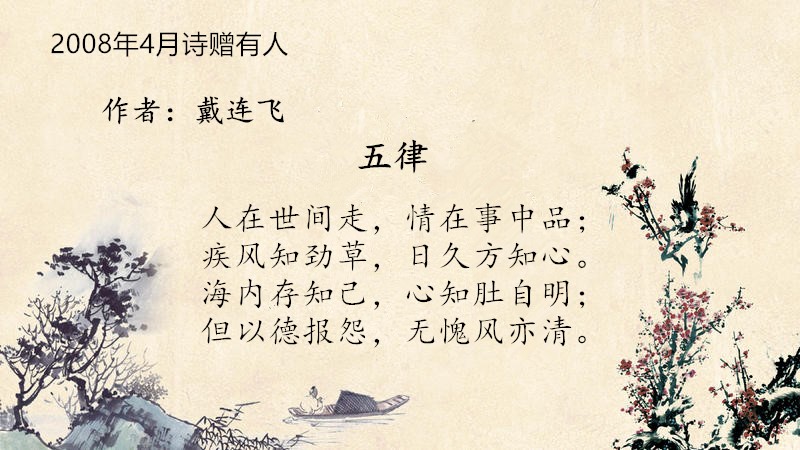 2008年4月诗赠有人
作者：戴连飞
五律
人在世间走，情在事中品；
疾风知劲草，日久方知心。
海内存知己，心知肚自明；
但以德报怨，无愧风亦清。